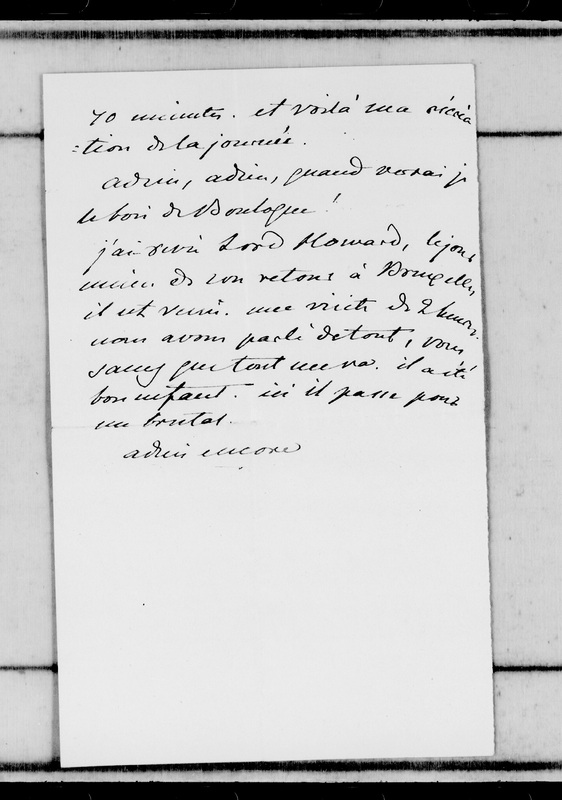 70 minutes. et voilà ma récréa
=tion de la journée.
adieu, adieu, quand verrai je
le bois de Boulogne !
j'ai revu Lord Howard, le jour
même de son retour à Bruxelles,
il est venu. une visite de 2 heures.
nous avons parlé de tout, vous
savez que tout me va. il a été
bon enfant. ici il passe pour
un brutal.
adieu encore